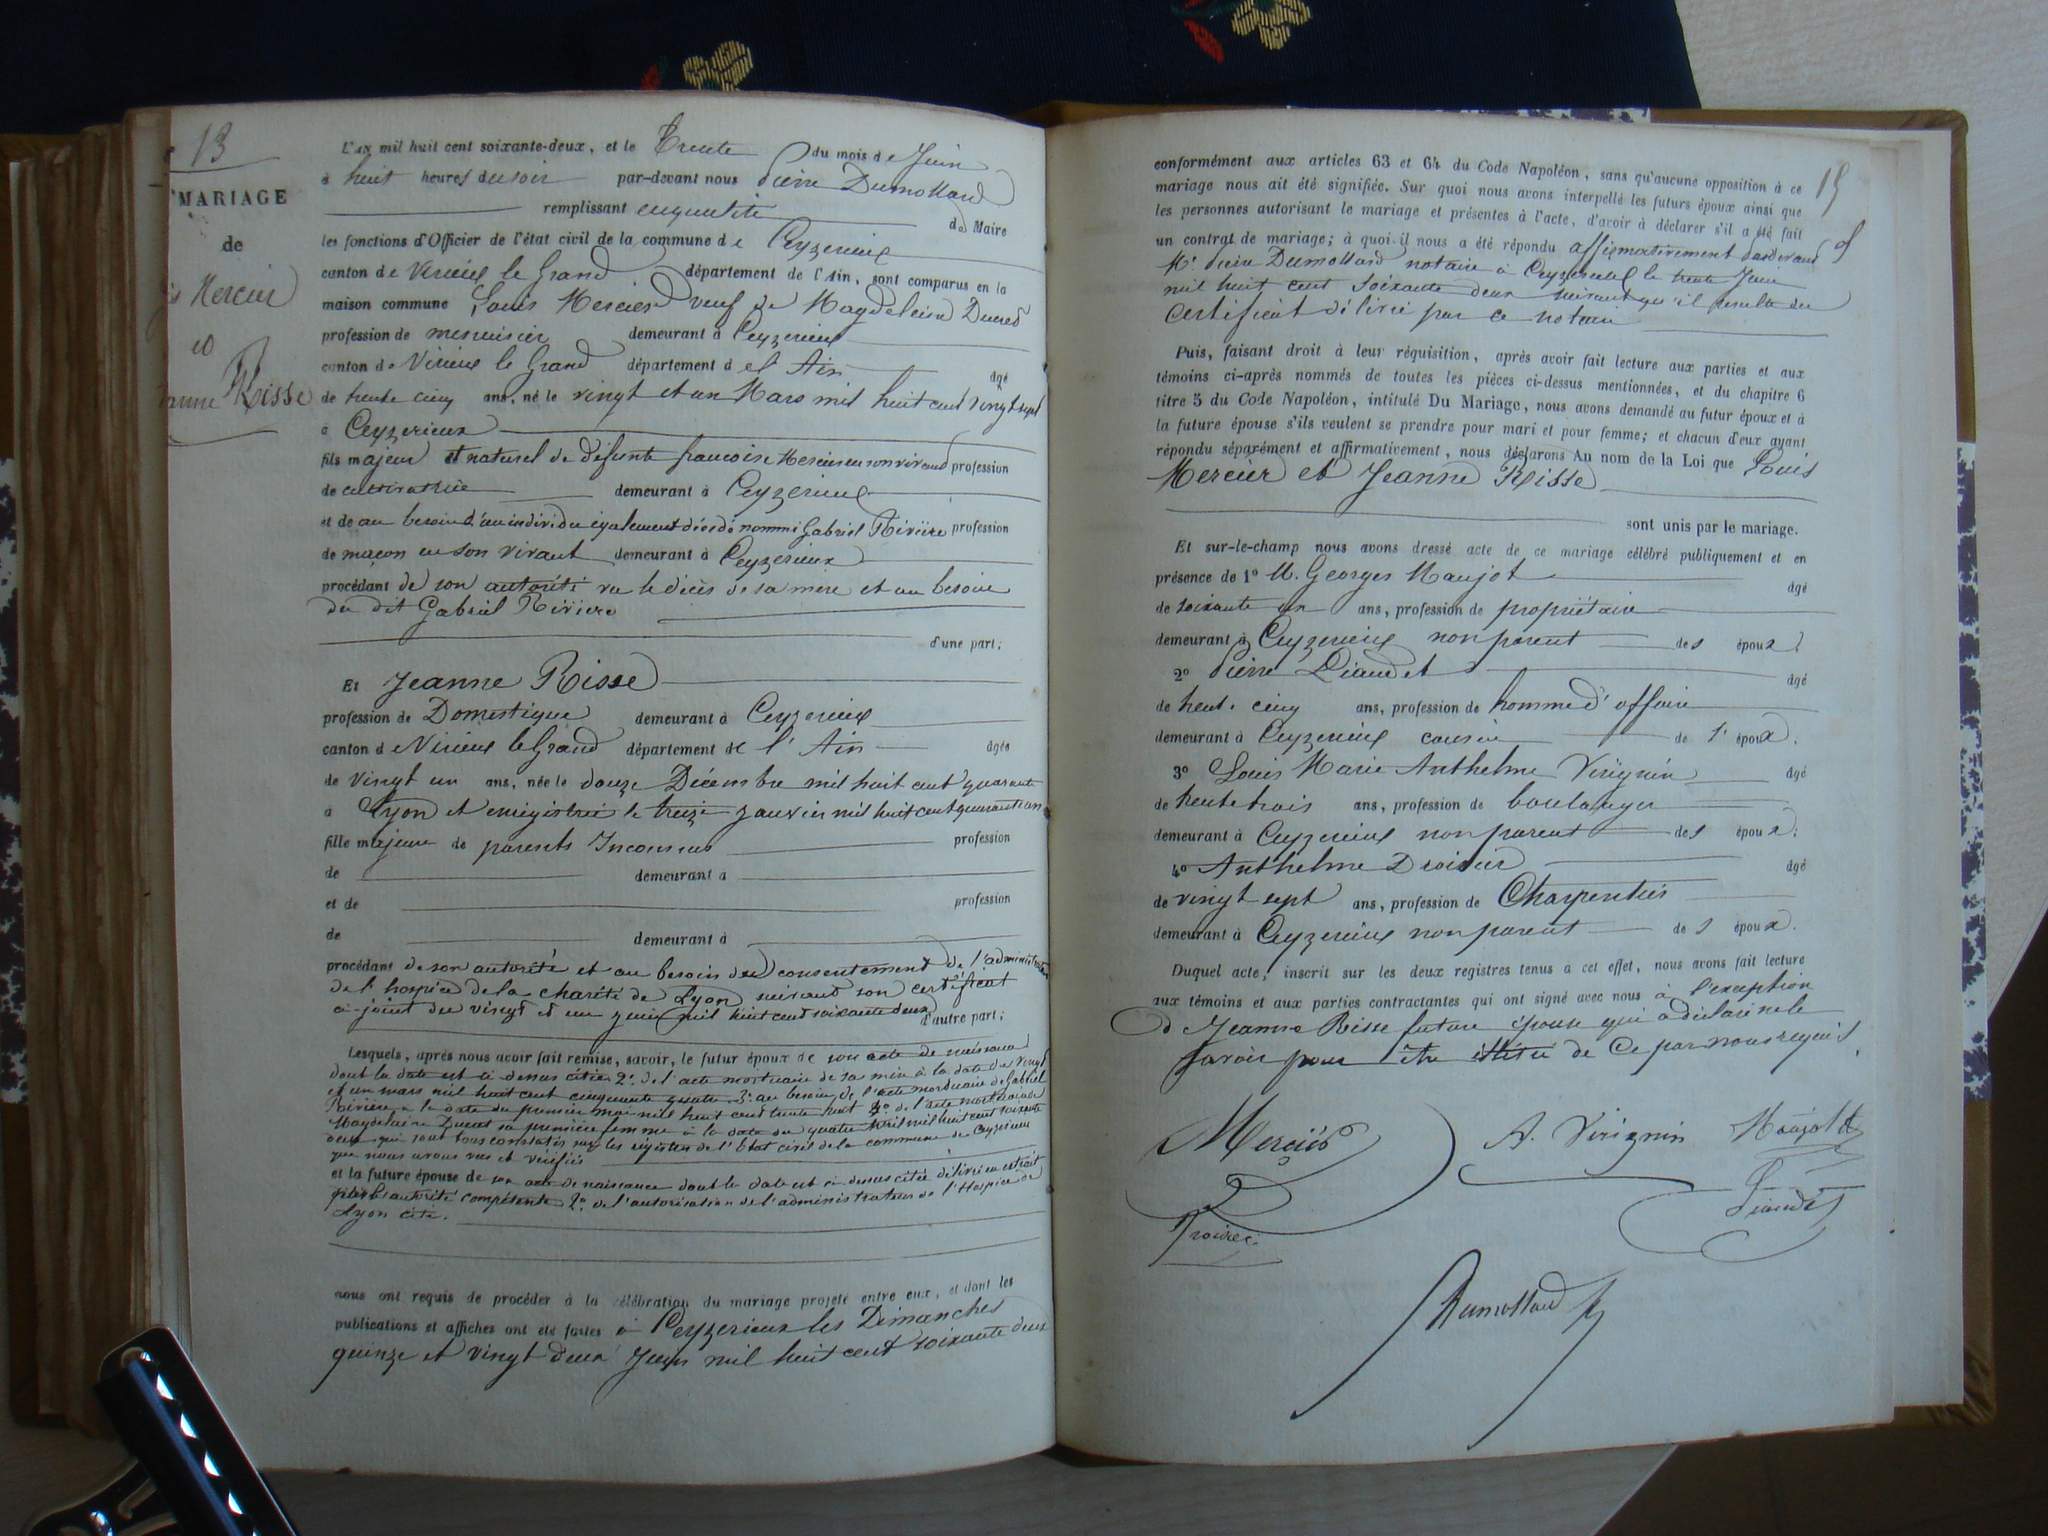 13
MARIAGE
de
Mercier
et
Risse
L'AN mil huit cent soixante-deux, et le Trente du mois de Juin
à huit heures du soir par-devant nous Pierre Dumollard
remplissant en qualité de Maire
les fonctions d'Officier de l'état civil de la commune de Ceyzerieux
canton de Virieux le Grand département de l'Ain, sont comparus en la
maison commune Louis Mercier veuf de Magdeleine Ducret
profession de menuisier demeurant à Ceyzerieux
canton de Virieux le Grand département de l'Ain âgé
de trente cinq ans, né le vingt et un Mars mil huit cent vingt sept
à Ceyzerieux
fils majeur et naturel de défunte francoise Mercier en son vivant profession
de cultivatrice demeurant à Ceyzerieux
et de au besoin d'un individu également décédé nommé Gabriel Rivière profession
de maçon en son vivant demeurant à Ceyzerieux
procédant de son autorité vu le décès de sa mère et au besoin
du dit Gabriel Rivière
d'une part;
Et Jeanne Risse
profession de Domestique demeurant à Ceyzerieux
canton de Virieux le Grand département de l'Ain âgée
de vingt un ans, née le douze Décembre mil huit cent quarante
à Lyon et enregistrée le treize janvier mil huit cent quarante un
fille majeure de parents Inconnus profession
de demeurant à
et de profession
de demeurant à
procédant de son autorité et au besoin du consentement de l'administration
de l'hospice de la charité de Lyon suivant son certificat
ci-joint du vingt et un juin mil huit cent soixante deux d'autre part;
Lesquels, après nous avoir fait remise, savoir, le futur époux de son acte de naissance
dont la date est ci dessus citée 2º de l'acte mortuaire de sa mère à la date du vingt
et un mars mil huit cent cinquante quatre 3º au besoin de l'acte mortuaire de Gabriel
Rivière à la date du premier mai mil huit cent trente huit 4º de l'acte mortuaire de
Magdeleine Ducret sa première femme à la date du quatre Avril mil huit cent soixante
deux qui sont tous constatés sur les registres de l'Etat civil de la commune de Ceyzerieux
que nous avons vus et vérifiés
et la future épouse de son acte de naissance dont la date est ci dessus citée délivré en extrait
par l'autorité compétente 2º de l'autorisation de l'administrateur de l'Hospice de
Lyon cité.
nous ont requis de procéder à la célébration du mariage projeté entre eux, et dont les
publications et affiches ont été faites à Ceyzerieux les Dimanches
quinze et vingt deux Juin mil huit cent soixante deux
15
conformément aux articles 63 et 64 du Code Napoléon, sans qu'aucune opposition à ce
mariage nous ait été signifiée. Sur quoi nous avons interpellé les futurs époux ainsi que
les personnes autorisant le mariage et présentes à l'acte, d'avoir à déclarer s'il a été fait
un contrat de mariage; à quoi il nous a été répondu affirmativement pardevant
Mᵉ Pierre Dumollard notaire à Ceyzerieux le trente Juin
mil huit cent soixante deux suivant qu'il resulte du
certificat délivré par ce notaire
Puis, faisant droit à leur réquisition, après avoir fait lecture aux parties et aux
témoins ci-après nommés de toutes les pièces ci-dessus mentionnées, et du chapitre 6
titre 5 du Code Napoléon, intitulé Du Mariage, nous avons demandé au futur époux et à
la future épouse s'ils veulent se prendre pour mari et pour femme; et chacun d'eux ayant
répondu séparément et affirmativement, nous déclarons Au nom de la Loi que Louis
Mercier et Jeanne Risse
sont unis par le mariage.
Et sur-le-champ nous avons dressé acte de ce mariage célébré publiquement et en
présence de 1º M. Georges Maujot âgé
de soixante un ans, profession de propriétaire
demeurant à Ceyzerieux non parent des époux
2º Pierre Liaudet âgé
de trente cinq ans, profession de homme d'affaire
demeurant à Ceyzerieux cousin de l'époux.
3º Louis Marie Anthelme Virignin âgé
de trente trois ans, profession de boulanger
demeurant à Ceyzerieux non parent des époux.
4º Anthelme Droisier âgé
de vingt sept ans, profession de Charpentier
demeurant à Ceyzerieux non parent des époux.
Duquel acte, inscrit sur les deux registres tenus à cet effet, nous avons fait lecture
aux témoins et aux parties contractantes qui ont signé avec nous à l'exception
de Jeanne Risse future épouse qui a déclaré ne le
savoir pour être de ce par nous requis.
Mercier
A. Virignin
Maujot
Liaudet
Dumollard